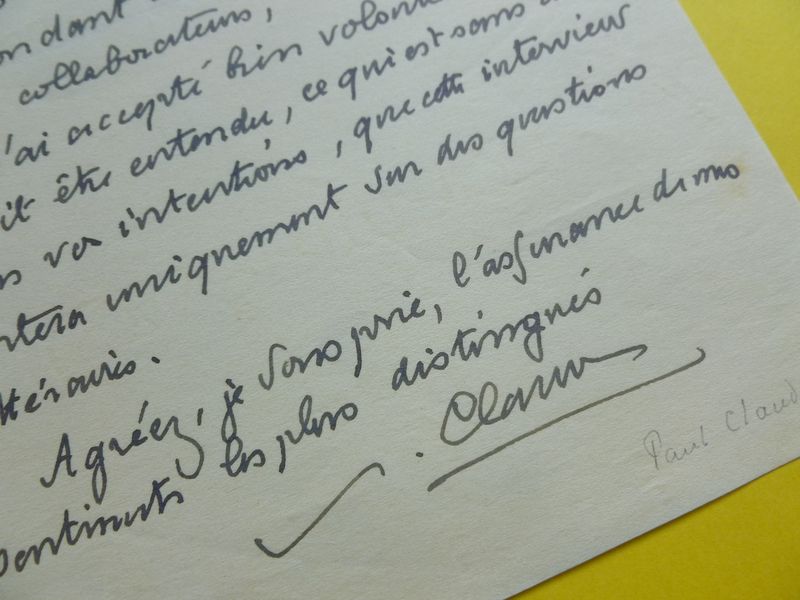 ondant
collaborateurs,
'ai accepté bien volon
it être entendu, ce qui est sans d
s vos intentions, que cette interview
rtera uniquement sur des questions
ttéraires.
Agréez, je vous prie, l'assurance de mes
sentiments les plus distingués
Claud
Paul Claud